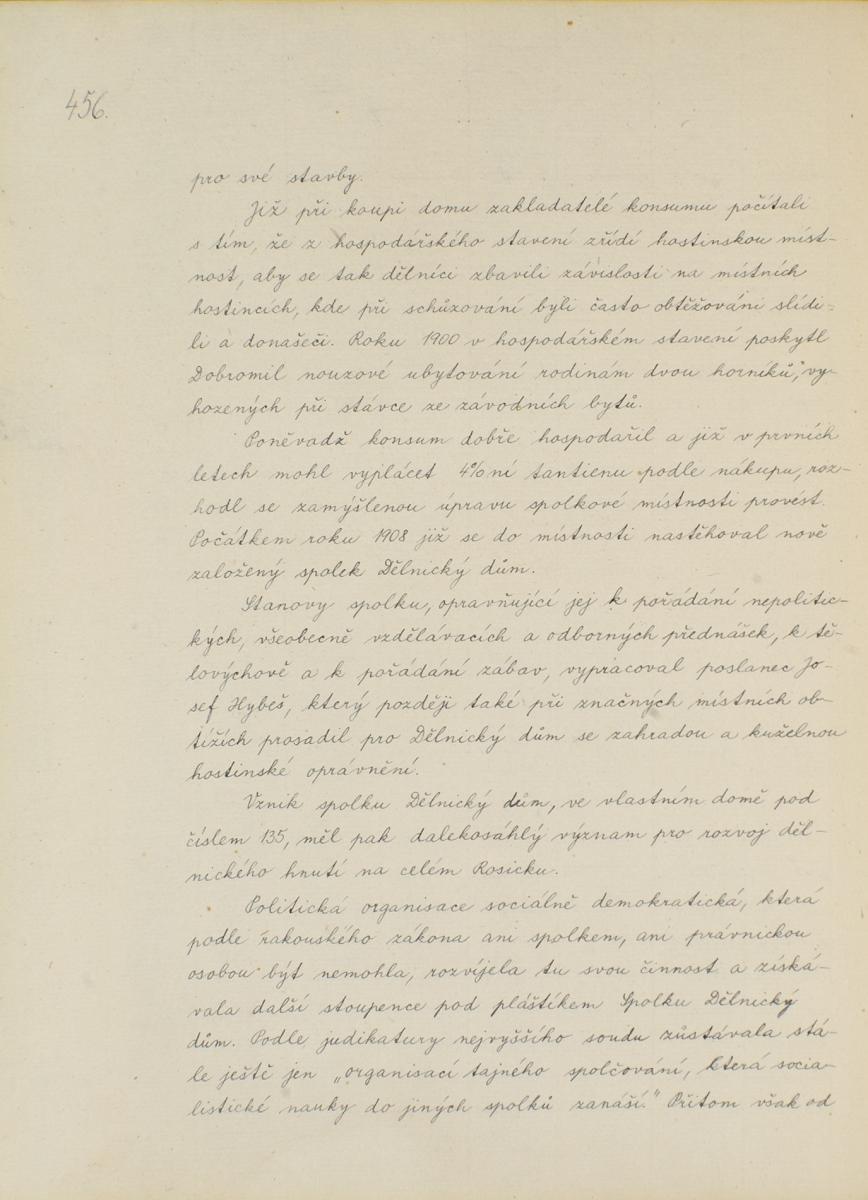 456.
pro své stavby.
Již při koupi domu zakladatelé konsumu počítali
s tím, že z hospodářského stavení zřídí hostinskou míst-
nost, aby se tak dělníci zbavili závislosti na místních
hostincích, kde při schůzování byli často obtěžováni slídi-
li a donašeči. Roku 1900 v hospodářském stavení poskytl
Dobromil nouzové ubytování rodinám dvou horníků, vy-
hozených při stávce ze závodních bytů.
Poněvadž konsum dobře hospodařil a již v prvních
letech mohl vyplácet 4%ní tantienu podle nákupu, roz-
hodl se zamýšlenou úpravu spolkové místnosti provést.
Počátkem roku 1908 již se do místnosti nastěhoval nově
založený spolek Dělnický dům.
Stanovy spolku, opravňující jej k pořádání nepolitic-
kých, všeobecně vzdělávacích a odborných přednášek, k tě-
lovýchově a k pořádání zábav, vypracoval poslanec Jo-
sef Hybeš, který později také při značných místních ob-
tížích prosadil pro Dělnický dům se zahradou a kuželnou
hostinské oprávnění.
Vznik spolku Dělnický dům, ve vlastním domě pod
číslem 135, měl pak dalekosáhlý význam pro rozvoj děl-
nického hnutí na celém Rosicku.
Politická organisace sociálně demokratická, která
podle rakouského zákona ani spolkem, ani právnickou
osobou být nemohla, rozvíjela tu svou činnost a získá-
vala další stoupence pod pláštíkem Spolku Dělnický
dům. Podle judikatury nejvyššího soudu zůstávala stá-
le ještě jen „organisací tajného spolčování, která socia-
listické nauky do jiných spolků zanáší." Přitom však od